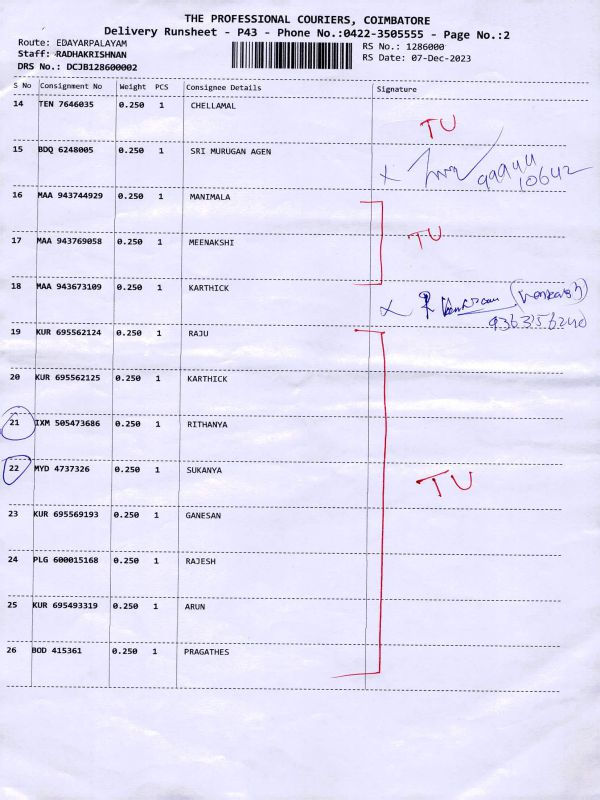 THE PROFESSIONAL COURIERS, COIMBATORE
Delivery Runsheet - P43 - Phone No.:0422-3505555 - Page No.:2
Route: EDAYARPALAYAM RS No.: 1286000
Staff: RADHAKRISHNAN RS Date: 07-Dec-2023
DRS No.: DCJB128600002
S No Consignment No Weight PCS Consignee Details Signature
14 TEN 7646035 0.250 1 CHELLAMAL
TU
15 BDQ 6248005 0.250 1 SRI MURUGAN AGEN
99944
10642
16 MAA 943744929 0.250 1 MANIMALA
17 MAA 943769058 0.250 1 MEENAKSHI TU
18 MAA 943673109 0.250 1 KARTHICK
9363156240
19 KUR 695562124 0.250 1 RAJU
20 KUR 695562125 0.250 1 KARTHICK
21 IXM 505473686 0.250 1 RITHANYA
22 MYD 4737326 0.250 1 SUKANYA
TU
23 KUR 695569193 0.250 1 GANESAN
24 PLG 600015168 0.250 1 RAJESH
25 KUR 695493319 0.250 1 ARUN
26 BOD 415361 0.250 1 PRAGATHES